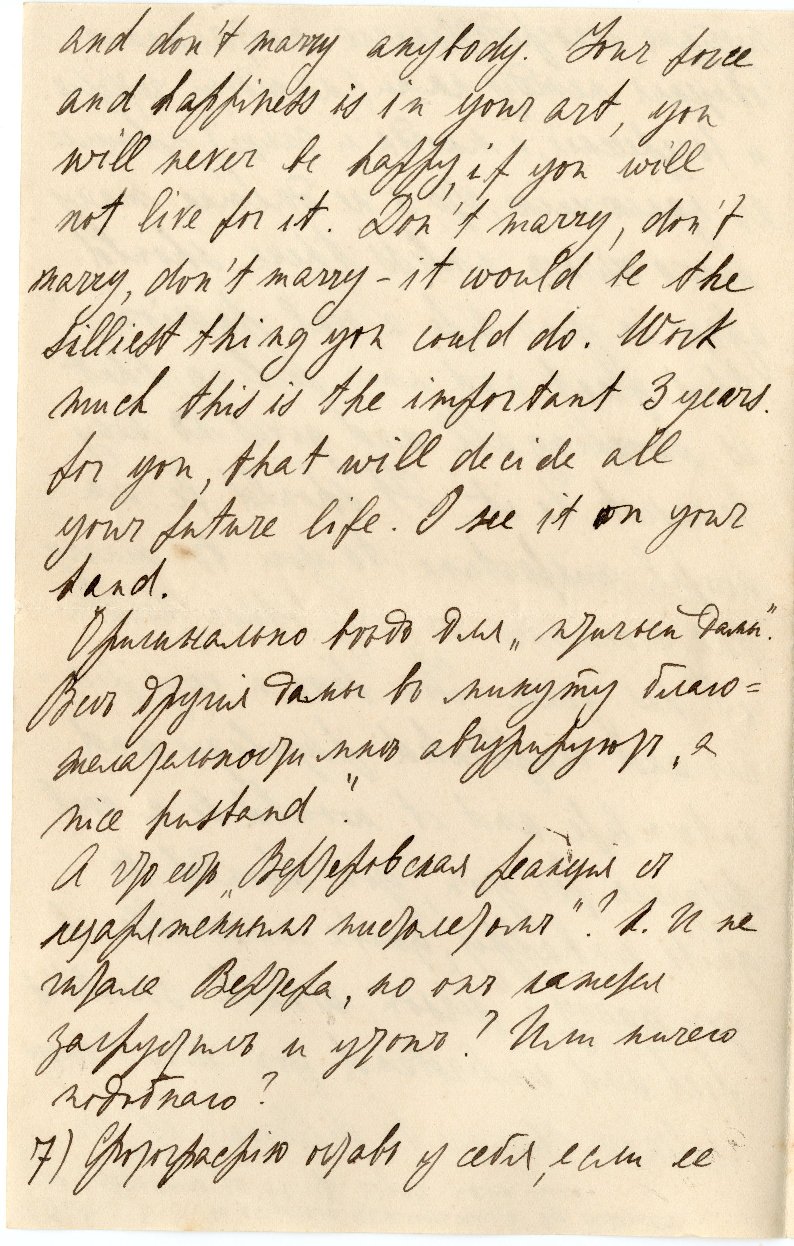 and don't marry anybody. Your force
and happiness is in your art, you
will never be happy, if you will
not live for it. Don't marry, don't
marry, don't marry – it would be the
silliest thing you could do. Work
much this is the important 3 years.
for you, that will decide all
your future life. I see it on your
hand.
Оригинально вѣдь для „птичьей дамы".
Всѣ другія дамы въ минуту благо=
желательности мнѣ авгурируютъ „a
nice husband".
А что есть „Вертеровская реакція съ
незаряженнымъ пистолетомъ"? Я не
читала Вертера, но онъ кажется
загрустилъ и утопъ? Или ничего
подобнаго?
7) Фотографію оставь у себя, если ее